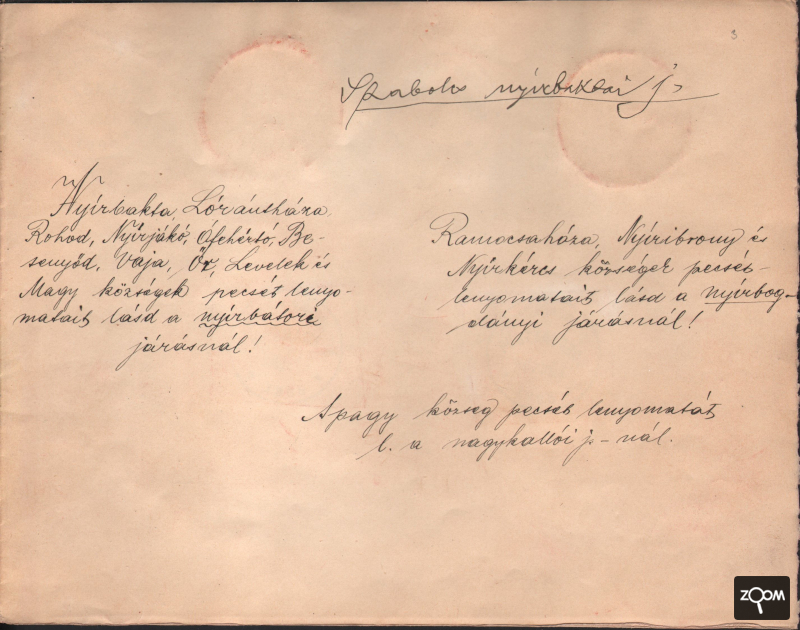 3
Szabolcs nyírbaktai j.
Nyírbakta, Lórántháza,
Rohod, Nyírjákó, Ófehértó, Be-
senyőd, Vaja, Őr, Levelek és
Magy községek pecsét lenyo-
matait lásd a nyírbatori
járásnál!
Ramocsaháza, Nyíribrony és
Nyírkércs községek pecsét-
lenyomatait lásd a nyírbog-
dányi járásnál!
Apagy község pecsét lenyomatát
l. a nagykallói j-nál.
ZOOM